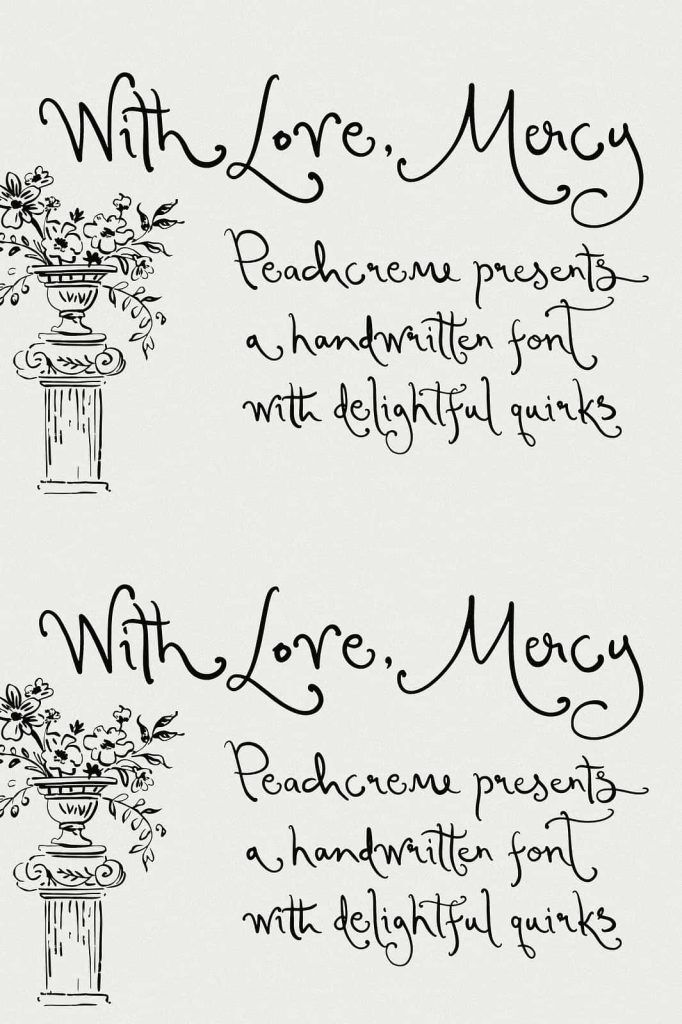 With Love, Mercy
Peachcreme presents
a handwritten font
with delightful quirks
With Love, Mercy
Peachcreme presents
a handwritten font
with delightful quirks